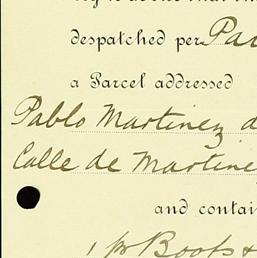 despatched per Pa
a Parcel addressed
Pablo Martinez d
Calle de Martine
and contai
1 pr Boots &